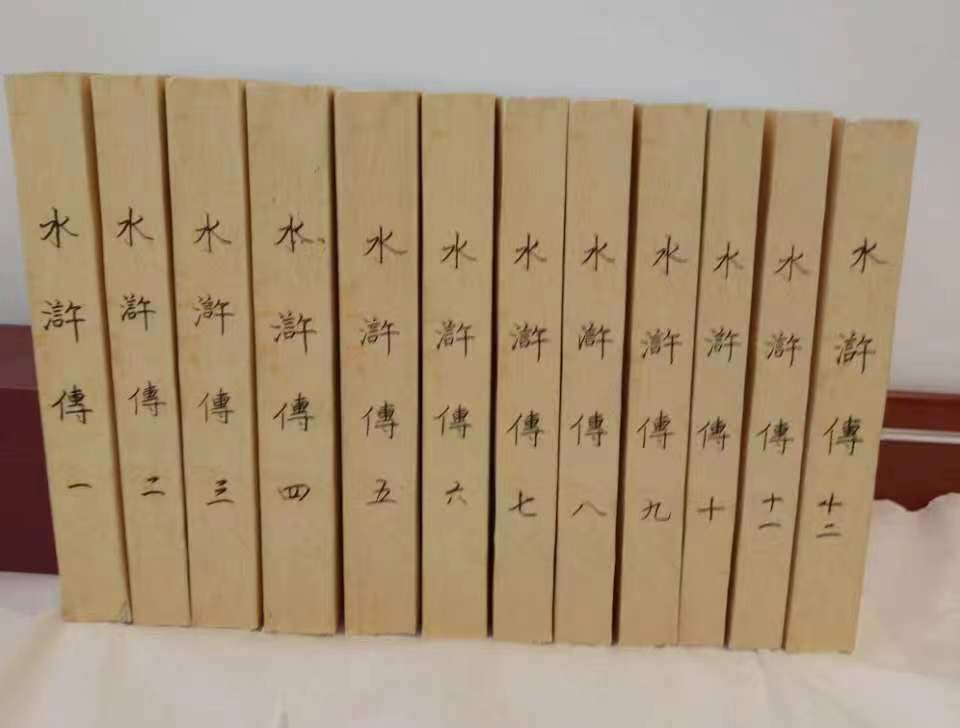 水滸傳 一
水滸傳 二
水滸傳 三
水滸傳 四
水滸傳 五
水滸傳 六
水滸傳 七
水滸傳 八
水滸傳 九
水滸傳 十
水滸傳 十一
水滸傳 十二